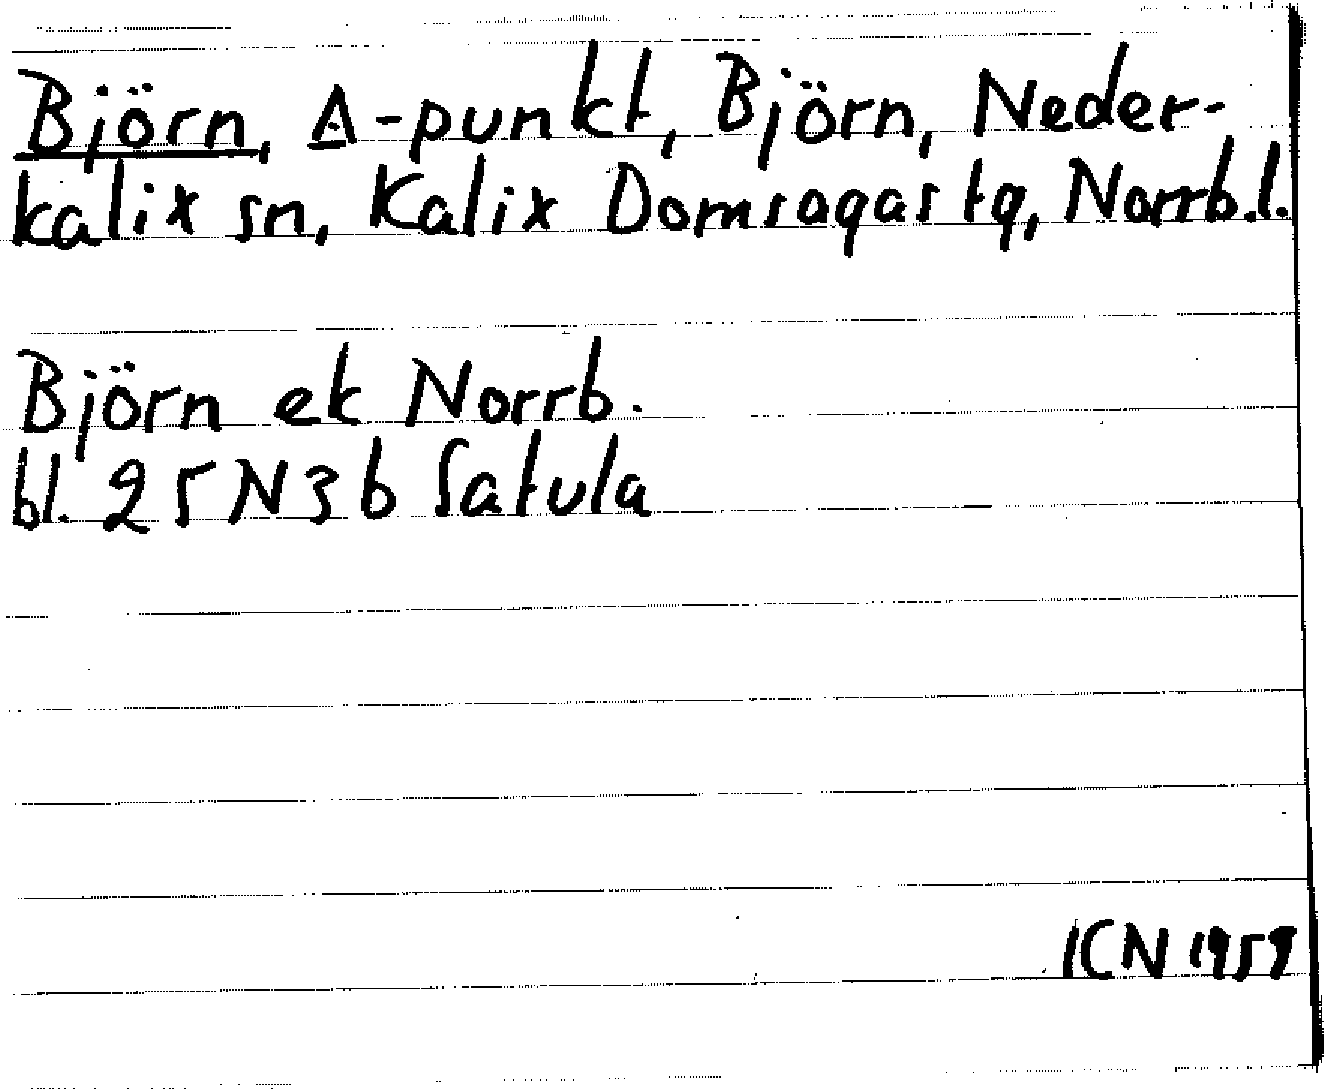 Björn, △-punkt, Björn, Neder-
kalix sn, Kalix Domsagas tg, Norrb.l.
Björn ek Norrb.
bl. 25 N 3 b Satula
ICN 1959